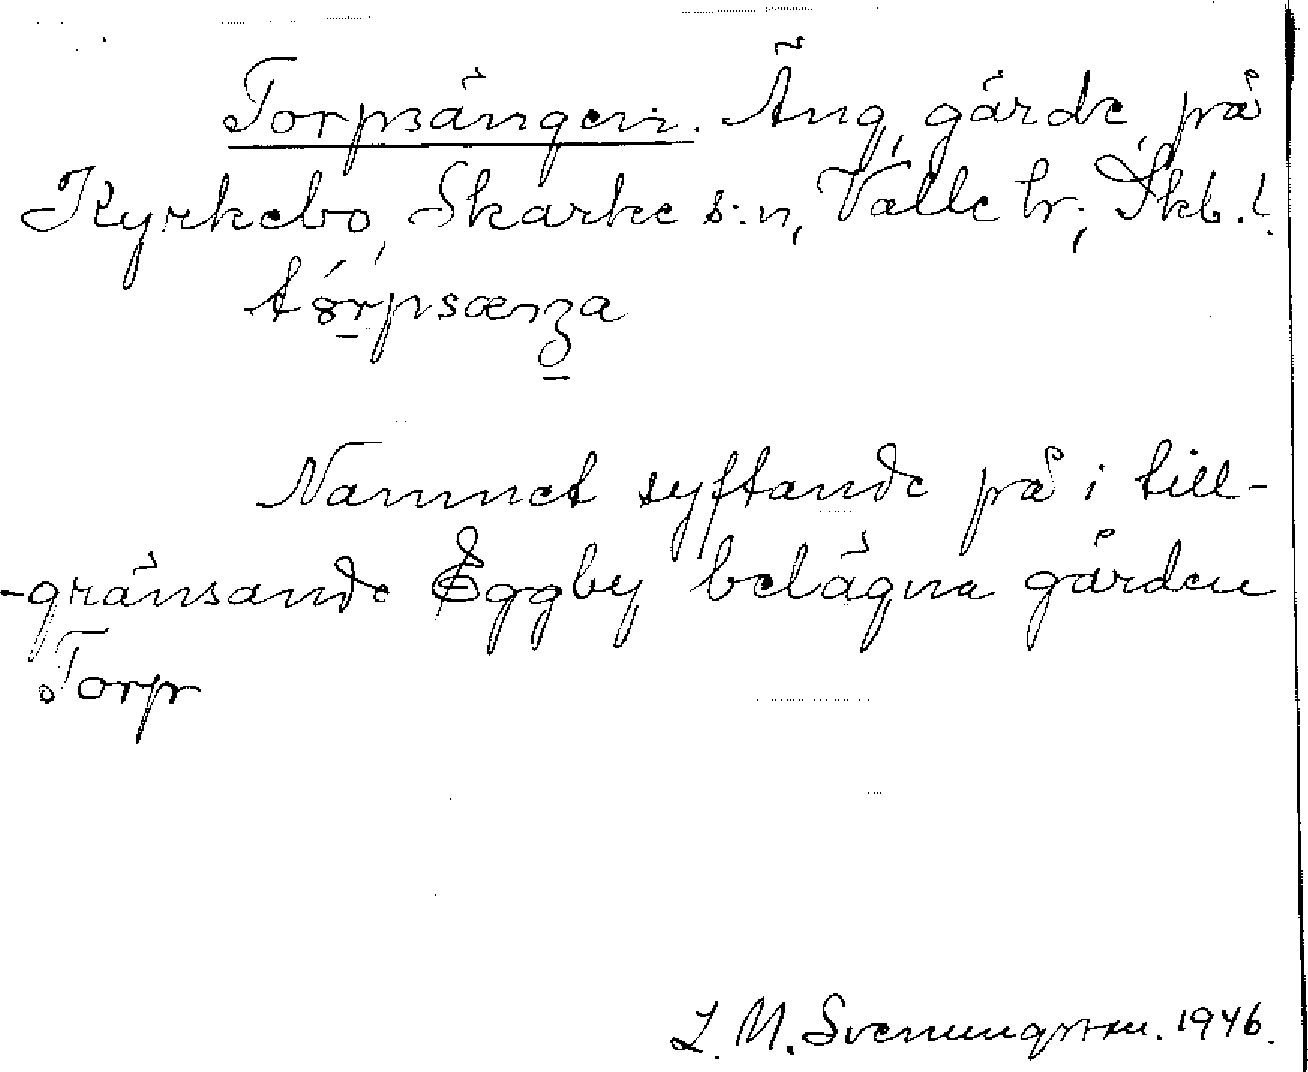 Torpsängen. Äng, gärde, på
Kyrkebo, Skarke s:n, Valle hr, Skb.l.
Namnet syftande på i till-
-gränsande Eggby belägna gården
Torp
L. M. Svenungsson. 1946.